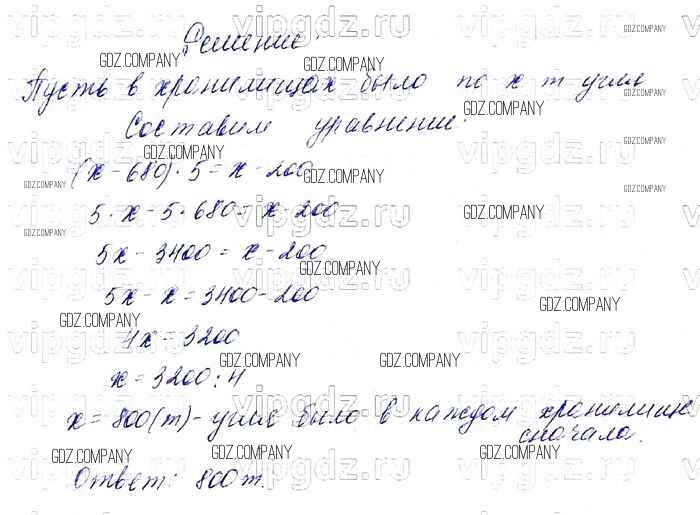 Решение:
Пусть в хранилищах было по x т угля
Составим уравнение:
(x - 680) · 5 = x - 200
5 · x - 5 · 680 = x - 200
5x - 3400 = x - 200
5x - x = 3400 - 200
4x = 3200
x = 3200 : 4
x = 800 (т) - угля было в каждом хранилище
сначала.
Ответ: 800 т.
vipgdz.ru
GDZ.COMPANY